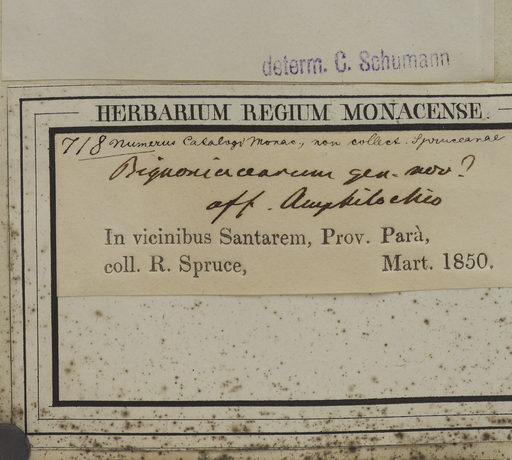 determ. C. Schumann
HERBARIUM REGIUM MONACENSE.
718 Numerus Catalogi Monac., non collect. Spruceanae
Bignoniacearum gen. nov?
aff. Amphilochio
In vicinibus Santarem, Prov. Parà,
coll. R. Spruce, Mart. 1850.